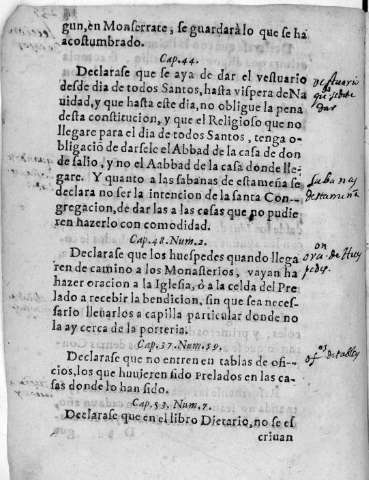 gun, en Monserrate, se guardarà lo que se ha
acostumbrado.
Cap. 44.
Declarase que se aya de dar el vestuario
desde dia de todos Santos, hasta vispera de Na
uidad, y que hasta este dia, no obligue la pena
desta constitucion, y que el Religioso que no
llegare para el dia de todos Santos, tenga o-
bligaciõ de darsele el Abbad de la casa de don
de salio, y no el Aabbad de la casa donde lle-
gare. Y quanto a las sabanas de estameña se
declara no ser la intencion de la santa Con-
gregacion, de dar las a las casas que no pudie
ren hazerlo con comodidad.
Cap. 48. Num. 2.
Declarase que los huespedes quando llega
ren de camino a los Monasterios, vayan ha
hazer oracion a la Iglesia, ò a la celda del Pre
lado a recebir la bendicion, sin que sea neces-
sario lleuarlos a capilla particular donde no
la ay cerca de la porteria.
Cap. 37. Num. 59.
Declarase que no entren en tablas de ofi-
cios, los que huuieren sido Prelados en las ca-
sas donde lo han sido.
Cap. 53. Num. 7.
Declarase que en el libro Dietario, no se es
criuan
Vestuario
dar
sabanas
de estameña
on
ora de Hues
pedes
ofos de tabla